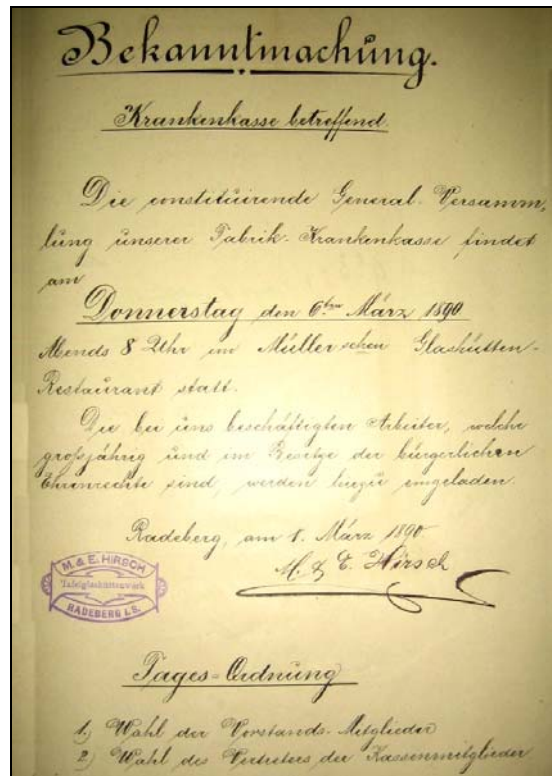 Bekanntmachung.
Krankenkasse betreffend.
Die constituirende General-Versamm-
lung unserer Fabrik-Krankenkasse findet
am
Donnerstag den 6ten März 1890
Abends 8 Uhr im Müller'schen Glashütten-
Restaurant statt.
Die bei uns beschäftigten Arbeiter, welche
großjährig und im Besitze der bürgerlichen
Ehrenrechte sind, werden hiezu eingeladen.
Radeberg, am 1. März 1890.
M. & E. Hirsch
M. & E. HIRSCH
Tafelglashüttenwerk
RADEBERG i. S.
Tages-Ordnung
1.) Wahl der Vorstands-Mitglieder
2.) Wahl des Vertreters der Kassenmitglieder